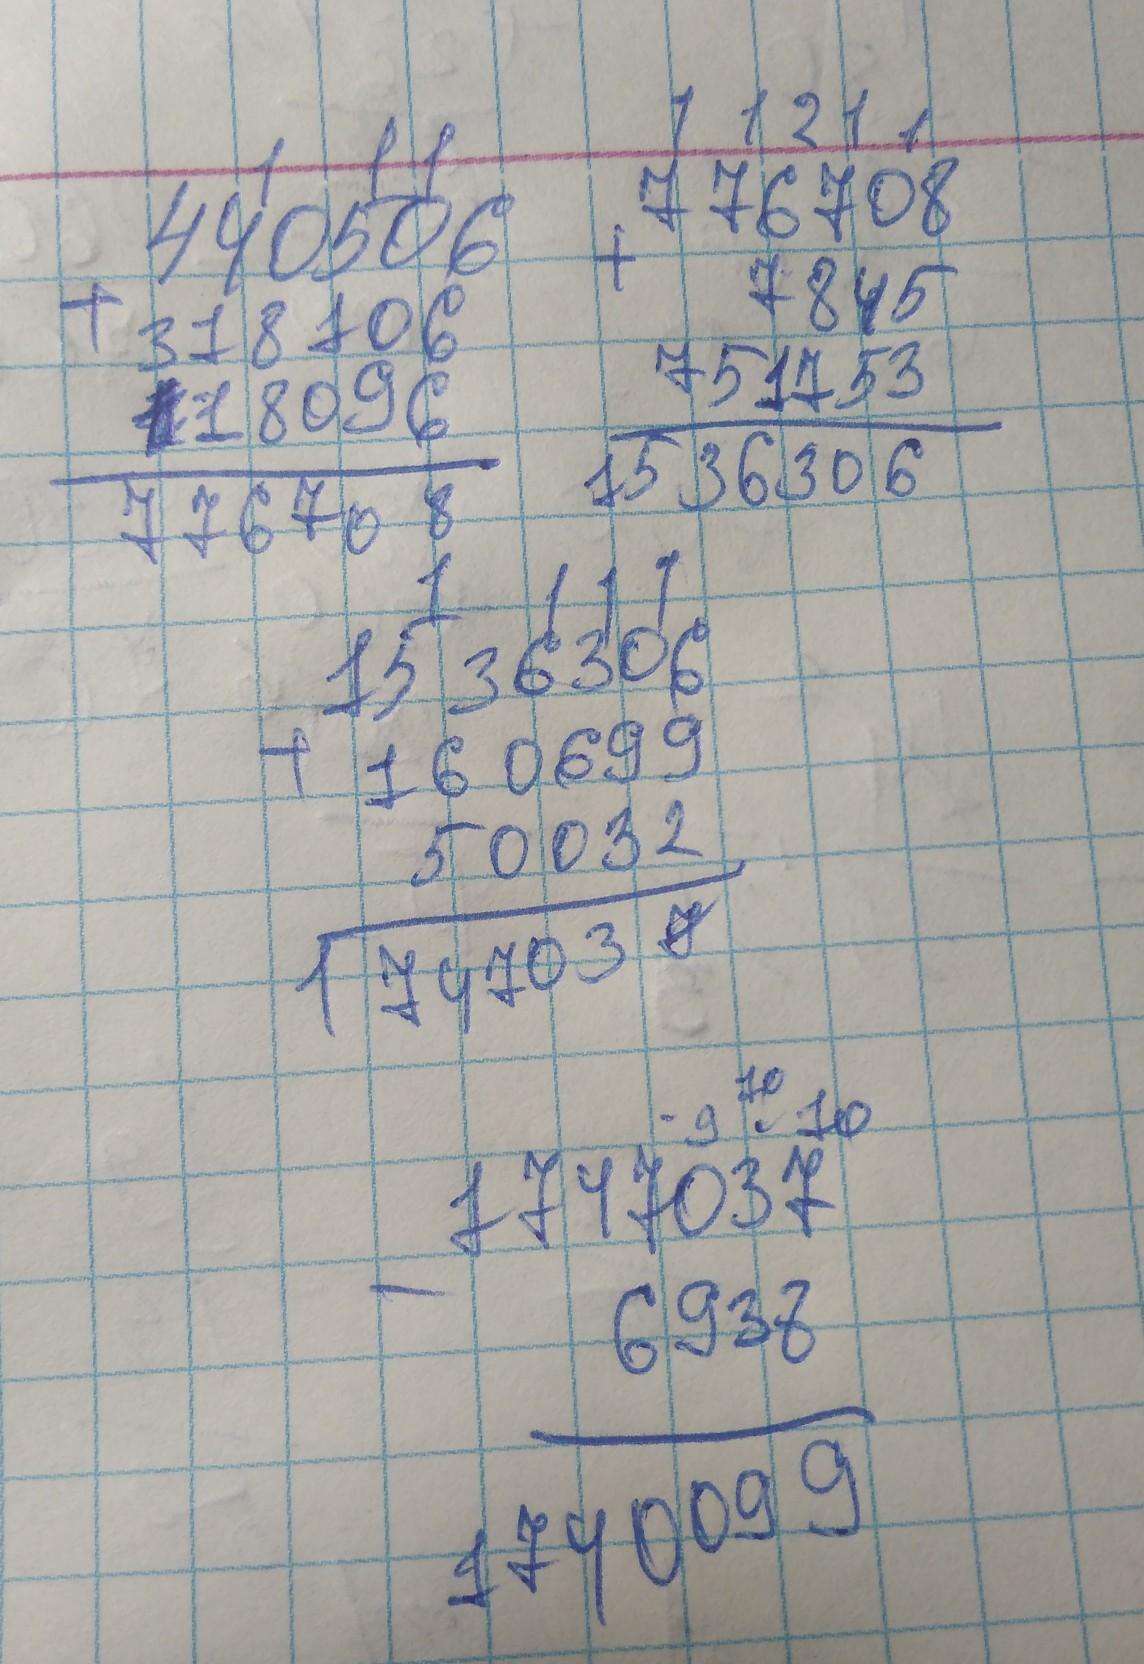 1 1 1
440506
+
318106
118096
776708
1 1 2 1 1
776708
+
7845
751753
1536306
1 1 1 1
1536306
+
160699
50032
1747037
9 10 10
1747037
-
6938
1740099